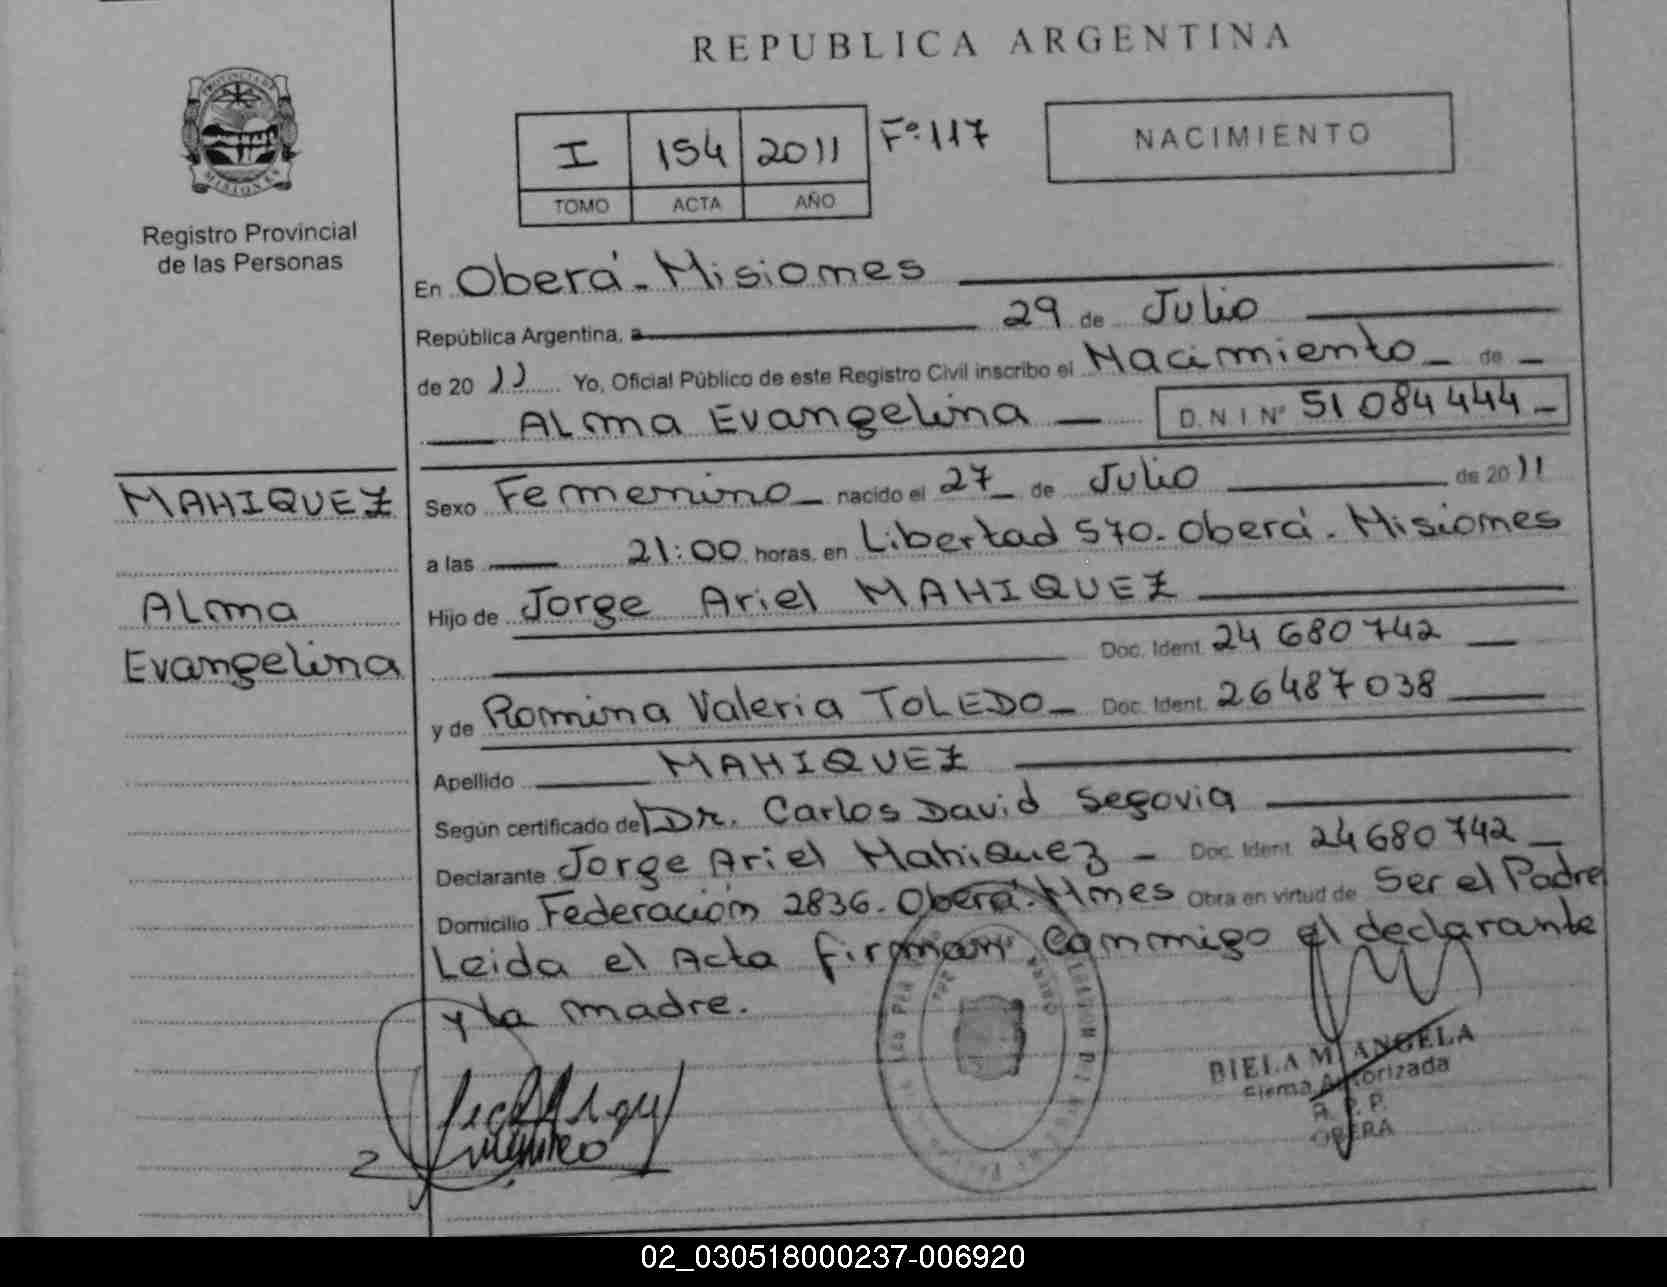 REPUBLICA ARGENTINA
PROVINCIA DE
MISIONES
Registro Provincial
de las Personas
I 154 2011 Fº 117
TOMO ACTA AÑO
NACIMIENTO
En Oberá - Misiones
República Argentina, a 29 de Julio
de 20 11 Yo, Oficial Público de este Registro Civil inscribo el Nacimiento de
Alma Evangelina D.N.I Nº 51 084 444
MAHIQUEZ
Alma
Evangelina
Sexo Femenino nacido el 27 de Julio de 20 11
a las 21:00 horas, en Libertad 570. Oberá. Misiones
Hijo de Jorge Ariel MAHIQUEZ
Doc. Ident. 24 680 742
y de Romina Valeria TOLEDO Doc. Ident. 26 487 038
Apellido MAHIQUEZ
Según certificado de Dr. Carlos David Segovia
Declarante Jorge Ariel Mahiquez Doc. Ident. 24 680 742
Domicilio Federación 2836. Oberá. Mnes Obra en virtud de Ser el Padre
Leida el Acta firman conmigo el declarante
y la madre.
BIELA M. ANGELA
Firma Autorizada
R. P. P.
OBERA
02_030518000237-006920